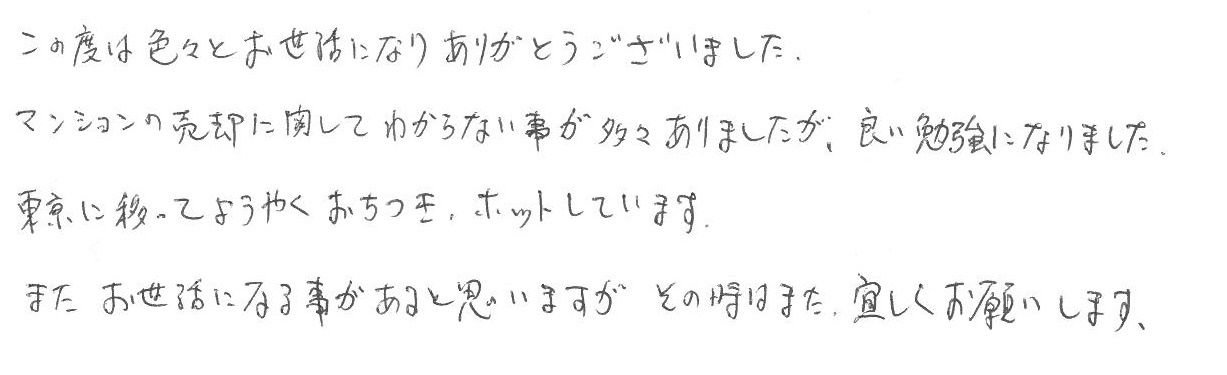 この度は色々とお世話になりありがとうございました.
マンションの売却に関してわからない事が多々ありましたが、良い勉強になりました.
東京に移ってようやくおちつき、ホットしています.
また お世話になる事があると思いますが その時はまた、宜しくお願いします、